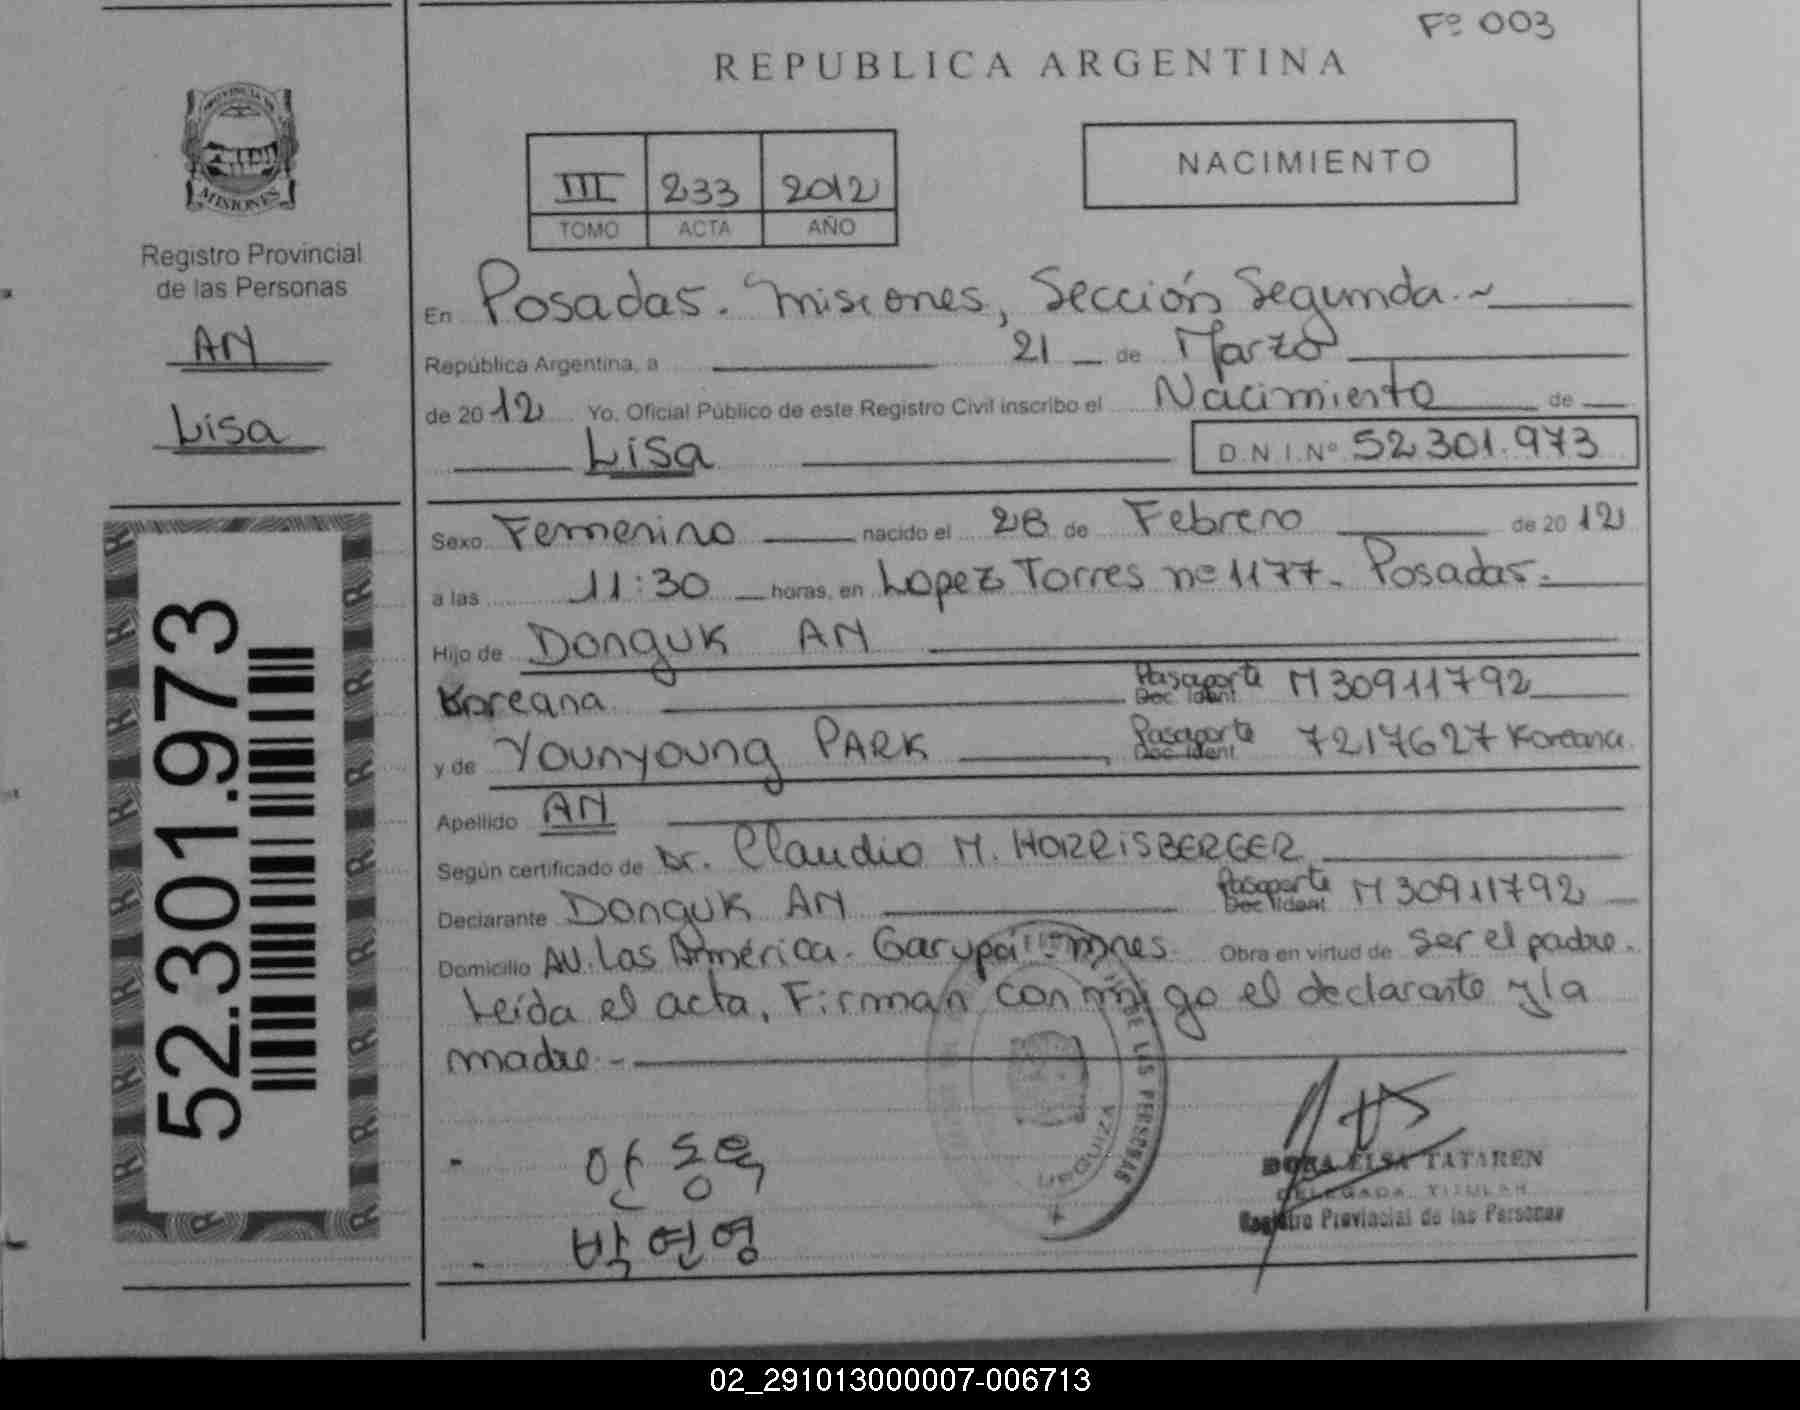 Fº 003
REPUBLICA ARGENTINA
NACIMIENTO
III 233 2012
TOMO ACTA AÑO
MISIONES
Registro Provincial
de las Personas
AN
Lisa
En Posadas. Misiones, Sección Segunda.~
República Argentina, a 21 de Marzo
de 2012 Yo, Oficial Público de este Registro Civil inscribo el Nacimiento de
Lisa D.N.I.Nº 52.301.973
Sexo Femenino nacido el 28 de Febrero de 2012
a las 11:30 horas, en Lopez Torres nº 1177. Posadas.
Hijo de Donguk AN
Koreana Pasaporte Doc Ident M30911792
y de Younyoung PARK Pasaporte Doc Ident 7217627 Koreana
Apellido AN
Según certificado de Dr. Claudio M. HORRISBERGER
Declarante Donguk AN Pasaporte Doc Ident M30911792
Domicilio AV. Las América. Garupá Mnes. Obra en virtud de ser el padre.
Leída el acta, Firman conmigo el declarante y la
madre.-
52.301.973
안동욱
박연영
DE LAS PERSONAS
URQUIZA
DORA ELSA TATAREN
DELEGADA TITULAR
Registro Provincial de las Personas
02_291013000007-006713